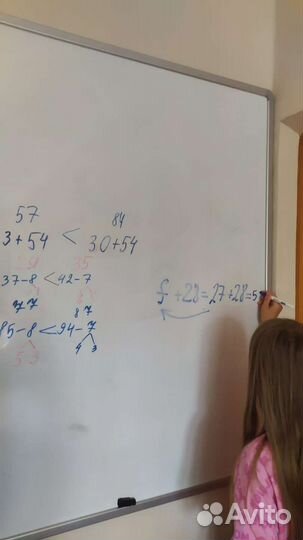 57 84
3+54 < 30+54
29 35
37-8 < 42-7
77 87
85-8 < 94-7
5 3 4 3
+28=27+28=5
Avito